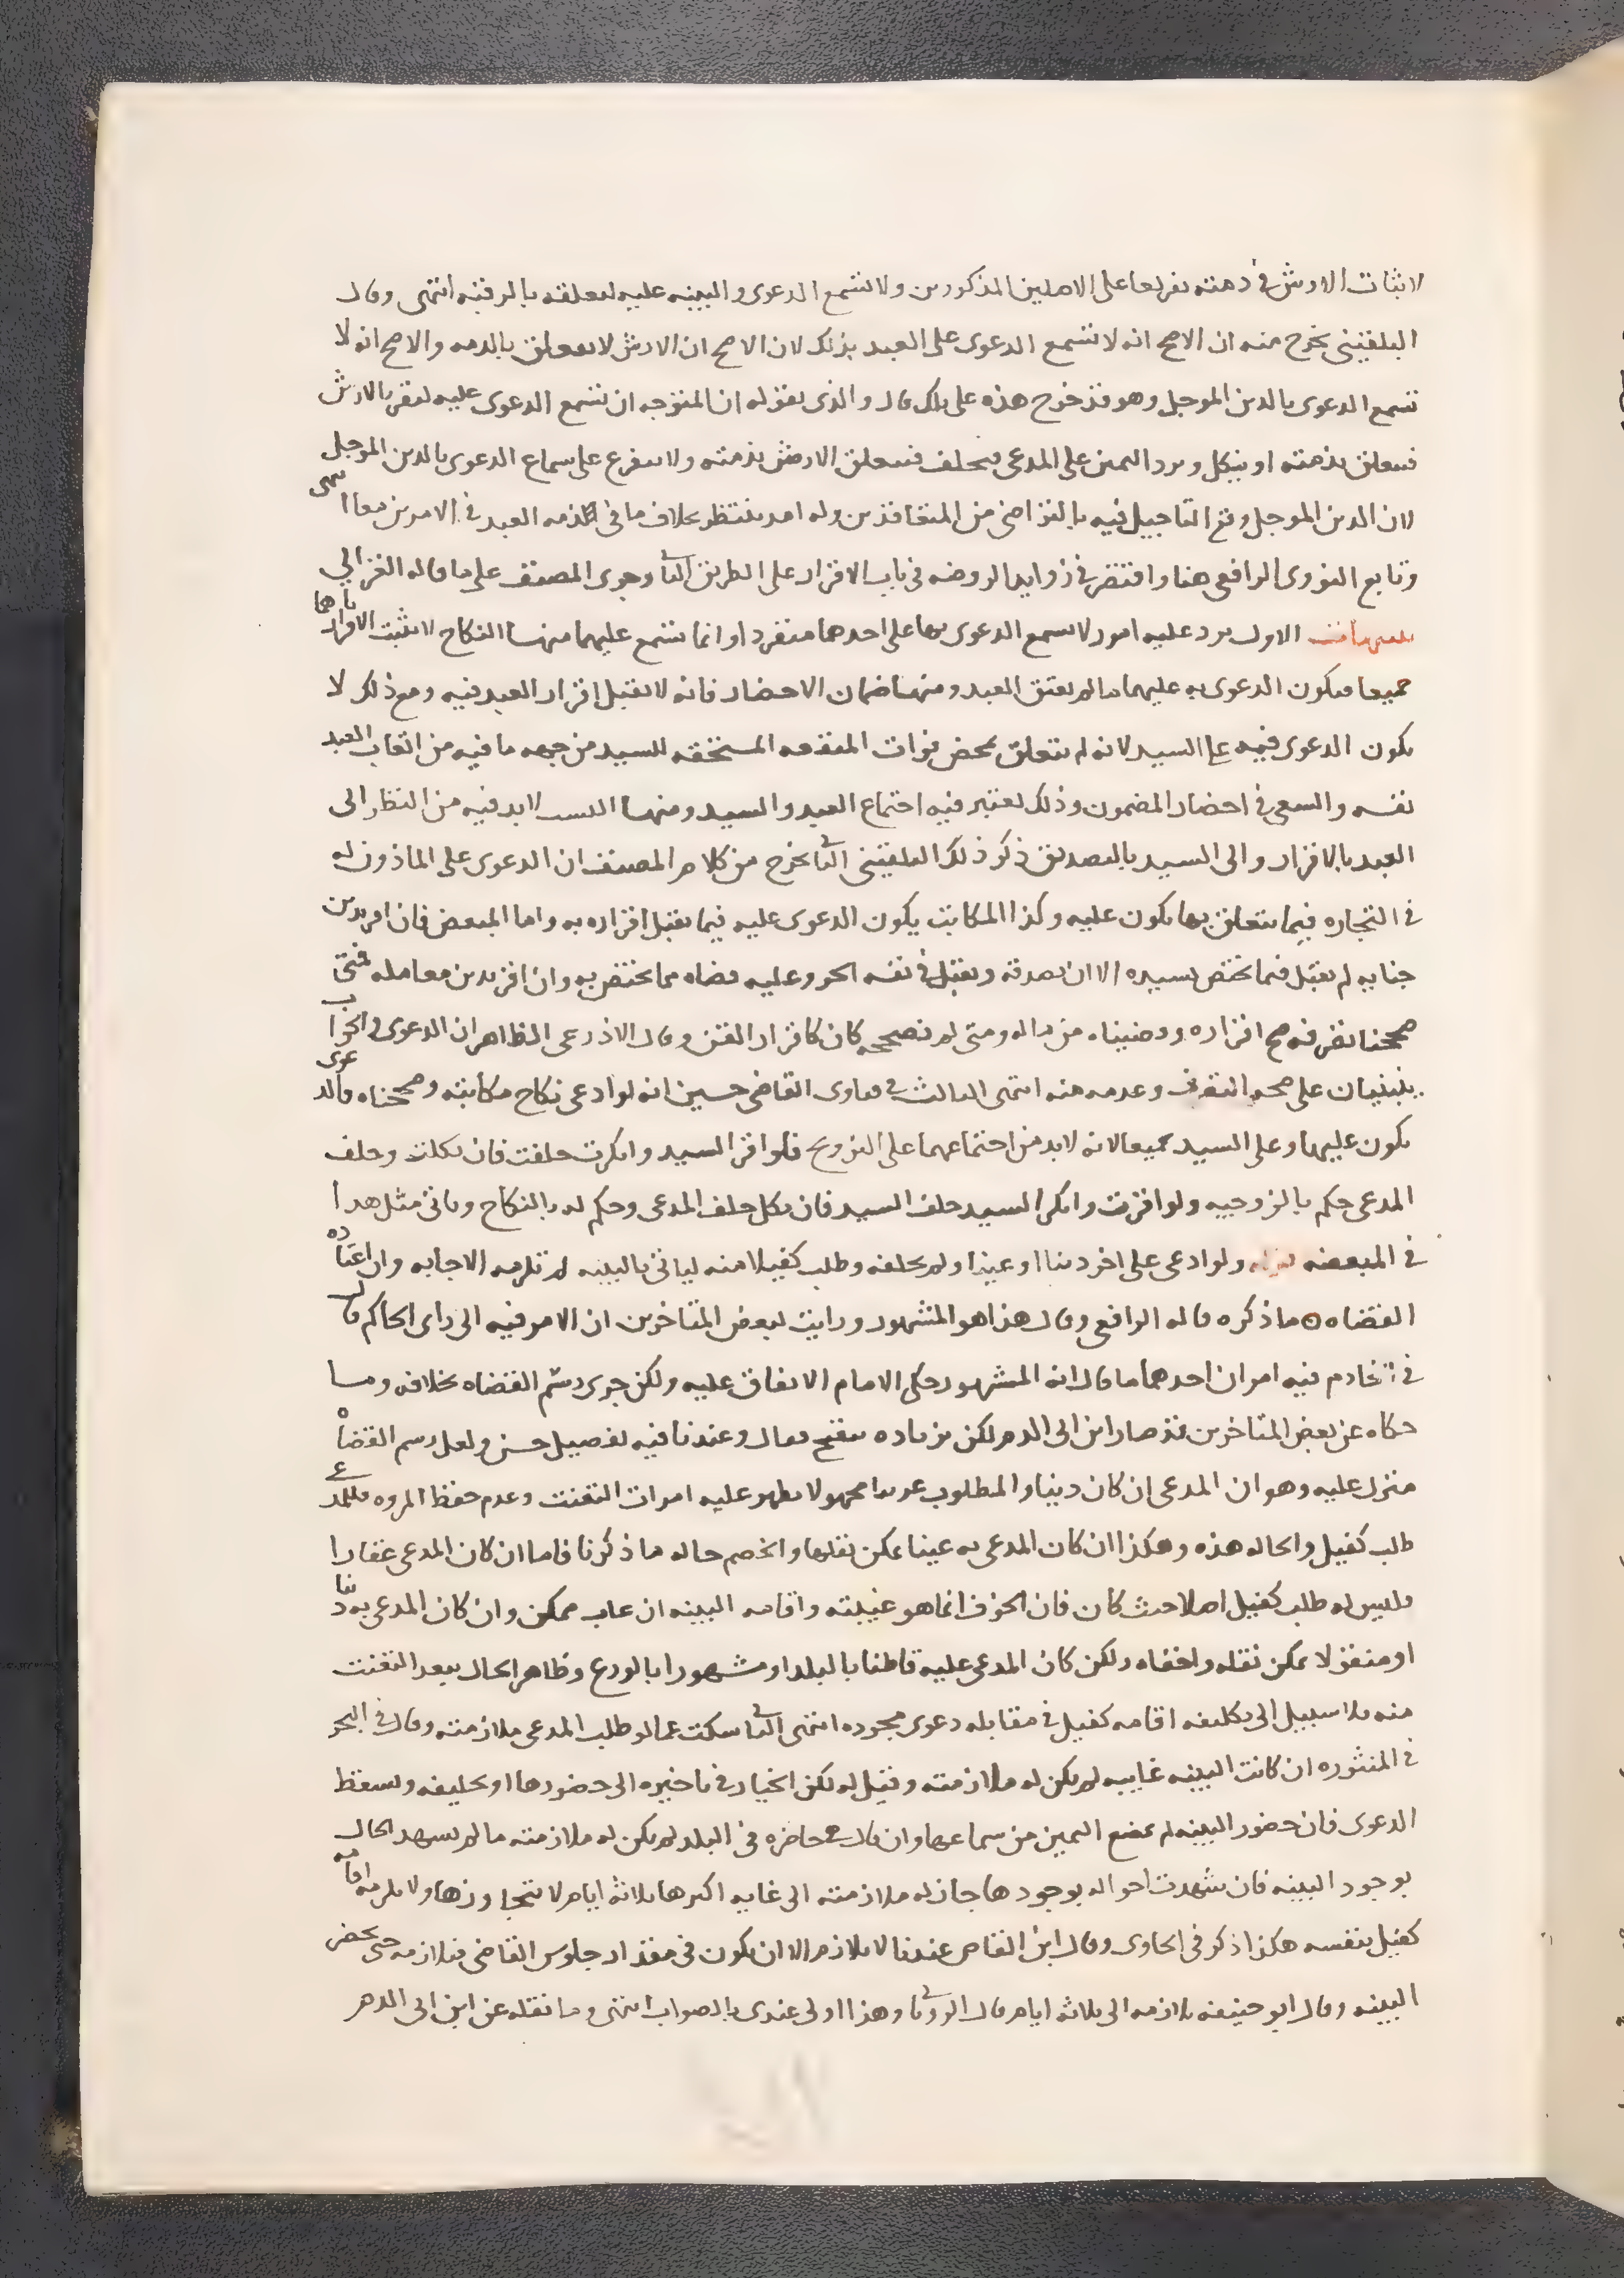 لاثبات الارش في ذمته تفريعا على الاصلين المذكورين ولا تسمع الدعوى والبينه عليه لتعلقه بالرقبه انتهى وقال
البلقيني يخرج منه ان الاصح انه لا تسمع الدعوى على العبد بذلك لان الاصح ان الارش لا يتعلق بالذمه والاصح انه لا
تسمع الدعوى بالدين الموجل وهو قد خرج هذه على تلك قال والذي نقوله ان المتوجه ان تسمع الدعوى عليه ليقر بالارش
فيتعلق بذمته او ينكل ويرد اليمين على المدعي فيحلف فيتعلق الارش بذمته ولا يتفرع على سماع الدعوى بالدين الموجل
لان الدين الموجل وقع التاجيل فيه بالتراضي من المتعاقدين وله امد ينتظر بخلاف ما في ذمه العبد في الامرين معا انتهى
وتابع النووي الرافعي هنا واقتصر في زوايد الروضه في باب الاقرار على الطريق الثاني وجرى المصنف على ما قاله الغزالي
تنبيهات الاول يرد عليه امور لا تسمع الدعوى بها على احدهما منفردا وانما تسمع عليهما منها النكاح لا يثبت الا باقرارهما
جميعا فتكون الدعوى به عليهما ما لم يعتق العبد ومنها ضمان الاحضار فانه لا يقبل اقرار العبد فيه ومع ذلك لا
تكون الدعوى فيه على السيد لانه لم يتعلق بمحض فوات المنفعه المستحقه للسيد من جهه ما فيه من اتعاب العبد
نفسه والسعي في احضار المضمون وذلك يعتبر فيه اجتماع العبد والسيد ومنها النسب لا بد فيه من النظر الى
العبد بالاقرار والى السيد بالتصديق ذكر ذلك البلقيني الثاني يخرج من كلام المصنف ان الدعوى على الماذون له
في التجاره فيما يتعلق بها تكون عليه وكذا المكاتب يكون الدعوى عليه فيما يقبل اقراره به واما المبعض فان اقر بدين
جنايه لم يقبل فيما يختص بسيده الا ان يصدقه ويقبل في نفسه الحر وعليه قضاه مما يختص به وان اقر بدين معامله فمتى
صححنا تصرفه صح اقراره وقضيناه من ماله ومتى لم نصححه كان كاقرار القن وقال الاذرعي الظاهر ان الدعوى والجواب
ينبنيان على صحه التصرف وعدمه منه انتهى الثالث في فتاوى القاضي حسين انه لو ادعى نكاح مكاتبته وصححناه فالدعوى
تكون عليها وعلى السيد جميعا لانه لا بد من اجتماعهما على التزويج فلو اقر السيد وانكرت حلفت فان نكلت وحلف
المدعي حكم بالزوجيه ولو اقرت وانكر السيد حلف السيد فان نكل حلف المدعي وحكم له بالنكاح وياتي مثل هذا
في المبعضه قوله ولو ادعى على اخر دينا او عينا ولم يحلفه وطلب كفيلا منه لياتي بالبينه لم تلزمه الاجابه وان اعتاده
القضاه ما ذكره قاله الرافعي وقال هذا هو المشهور ورايت لبعض المتاخرين ان الامر فيه الى راي الحاكم قال
في الخادم فيه امران احدهما ما قال انه المشهور حكى الامام الاتفاق عليه ولكن جرى رسم القضاه بخلافه وما
حكاه عن بعض المتاخرين قد صار ابن ابي الدم لكن بزياده تنقيح فقال وعندنا فيه تفصيل حسن ولعل رسم القضاه
منزل عليه وهو ان المدعى ان كان دينا والمطلوب غريبا مجهولا يظهر عليه امارات التعنت وعدم حفظ المروه فللمدعي
طلب كفيل والحاله هذه وهكذا ان كان المدعى به عينا يمكن نقلها والخصم حاله ما ذكرنا فاما ان كان المدعى عقارا
فليس له طلب كفيل اصلا حيث كان فان الخوف انما هو غيبته واقامه البينه ان غاب ممكن وان كان المدعى به دينا
او منقولا يمكن نقله واخفاه ولكن كان المدعى عليه قاطنا بالبلد او مشهورا بالورع وظاهر الحال يبعد التعنت
منه فلا سبيل الى تكليفه اقامه كفيل في مقابله دعوى مجرده انتهى الثاني سكت عما لو طلب المدعي ملازمته وقال في البحر
في المنثوره ان كانت البينه غايبه لم يكن له ملازمته وقيل له لك الخيار في تاخيره الى حضورها او تحليفه وتسقط
الدعوى فان حضور البينه لم يمنع اليمين من سماعها وان كانت حاضره في البلد لم يكن له ملازمته ما لم يشهد الحال
بوجود البينه فان شهدت احواله بوجودها جاز له ملازمته الى غايه اكثرها ثلاثه ايام لا يتجاوزها ولا يلزمه اقامه
كفيل بنفسه هكذا ذكر في الحاوي وقال ابن القاص عندنا لا يلازم الا ان يكون في مقدار جلوس القاضي فيلازمه حتى يحضر
البينه وقال ابو حنيفه يلازمه الى ثلاثه ايام قال الروياني وهذا اولى عندي بالصواب انتهى وما نقله عن ابن ابي الدم هو